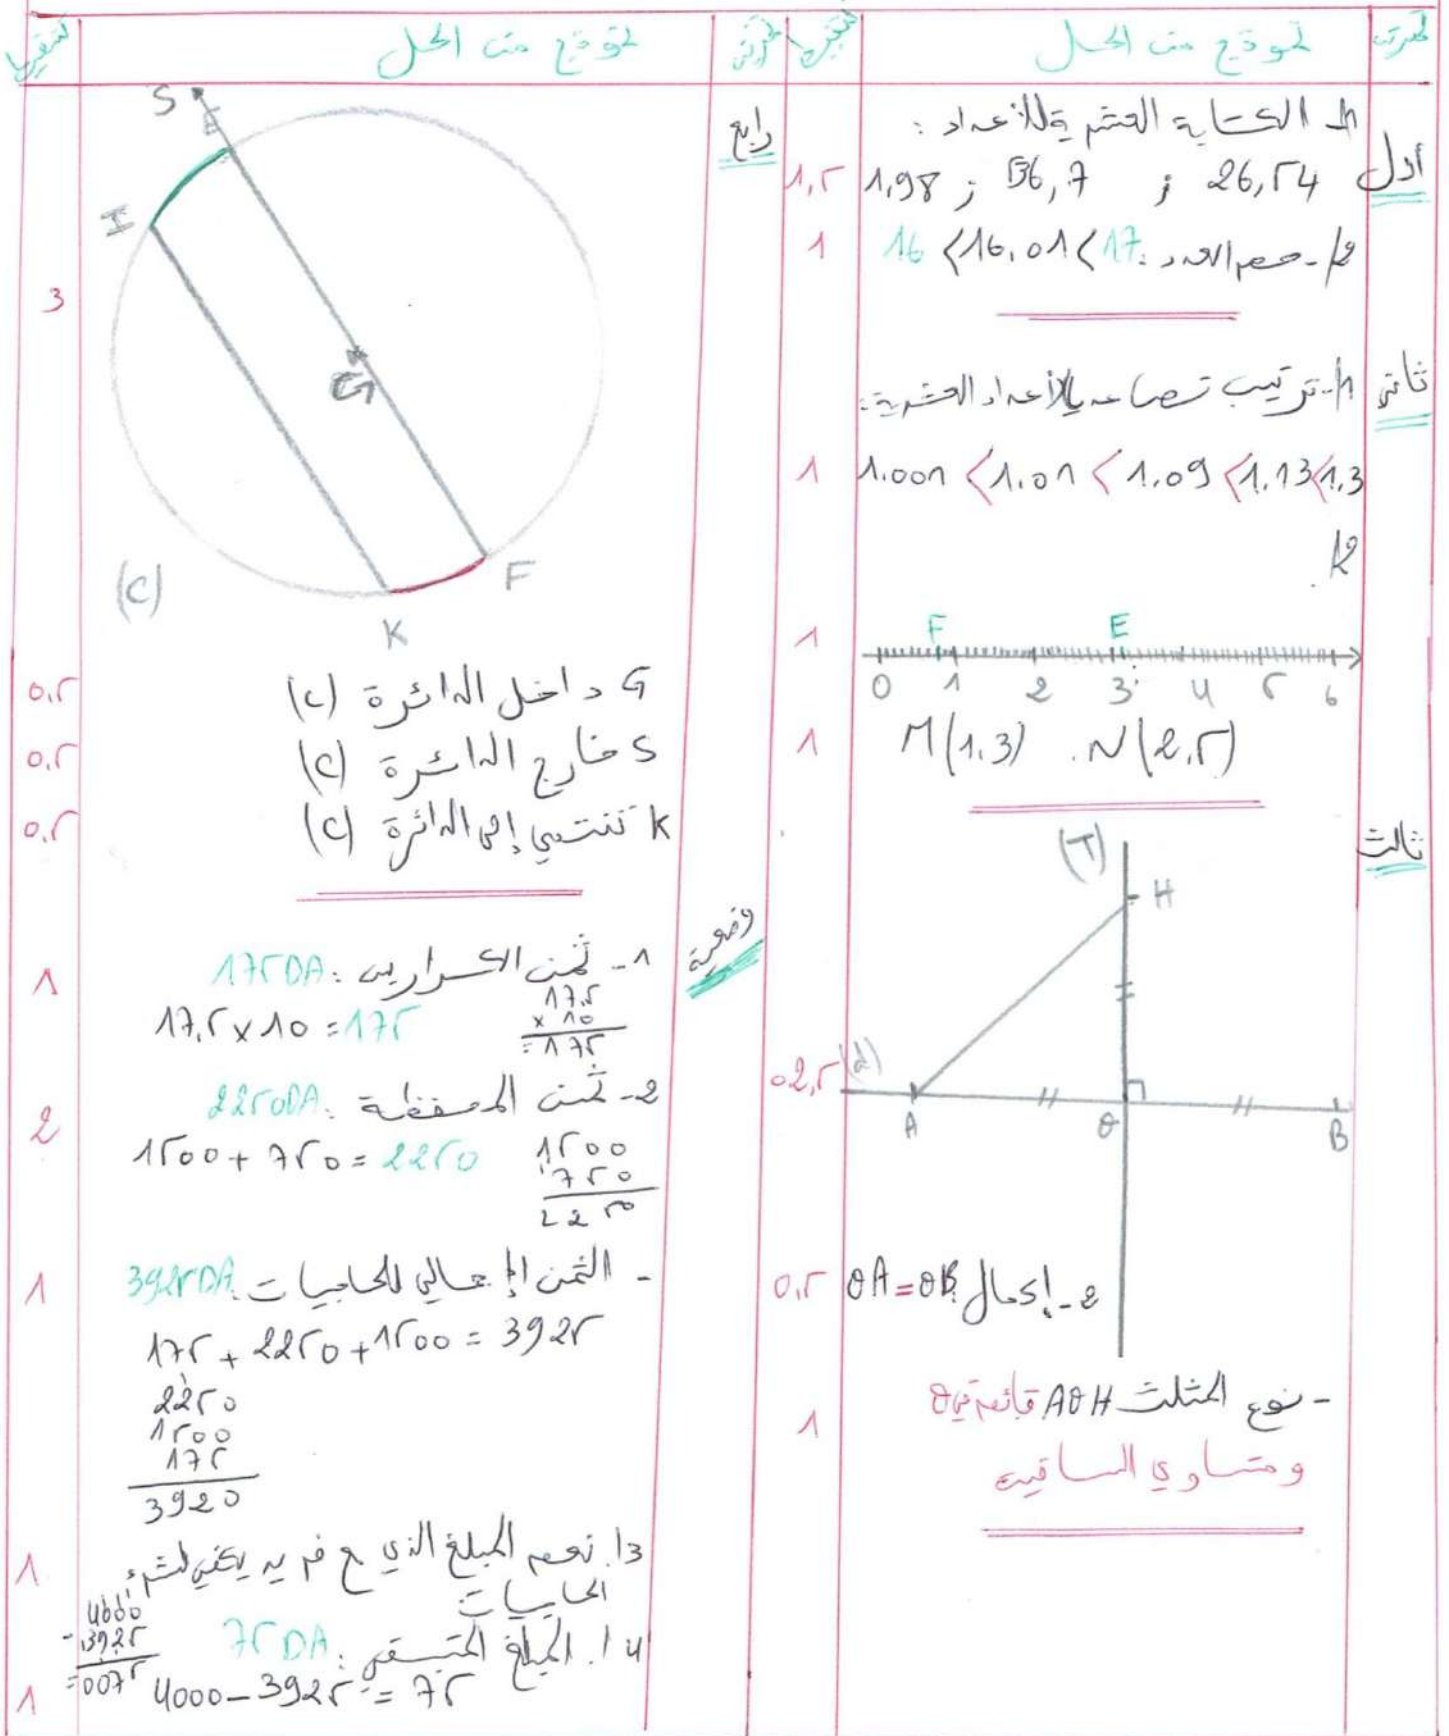 التمرين
نموذج من الحل
التنقيط
أول
1/ الكتابة العشرية للأعداد :
26,54 ; 56,7 ; 1,98
1,5
2/- حصر العدد : 16 < 16,01 < 17
1
ثاني
1/- ترتيب تصاعدي للأعداد العشرية :
1.001 < 1.01 < 1.09 < 1.13 < 1.3
1
2/
F E
0 1 2 3 4 5 6
1
M(1,3) . N(2,5)
1
ثالث
(T)
H
(d)
A O B
02,5
2- إكمال OA = OB
0,5
- نوع المثلث AOH قائم في O
ومتساوي الساقين
1
التمرين
نموذج من الحل
التنقيط
رابع
S
E
I
G
F
K
(C)
3
G داخل الدائرة (C)
0,5
S خارج الدائرة (C)
0,5
K تنتمي إلى الدائرة (C)
0,5
وضعية
1- ثمن الكراريس : 175DA
1
17,5 × 10 = 175
17,5
× 10
= 175
2- ثمن المحفظة : 2250DA
2
1500 + 750 = 2250
1500
750
2250
- الثمن الإجمالي للحاجيات : 3925DA
1
175 + 2250 + 1500 = 3925
2250
1500
175
3920
3/. نعم المبلغ الذي
يكفي لشراء
الحاجيات
1
4/. المبلغ المتبقي : 75DA
4000 - 3925 = 75
4000
- 3925
= 0075
1